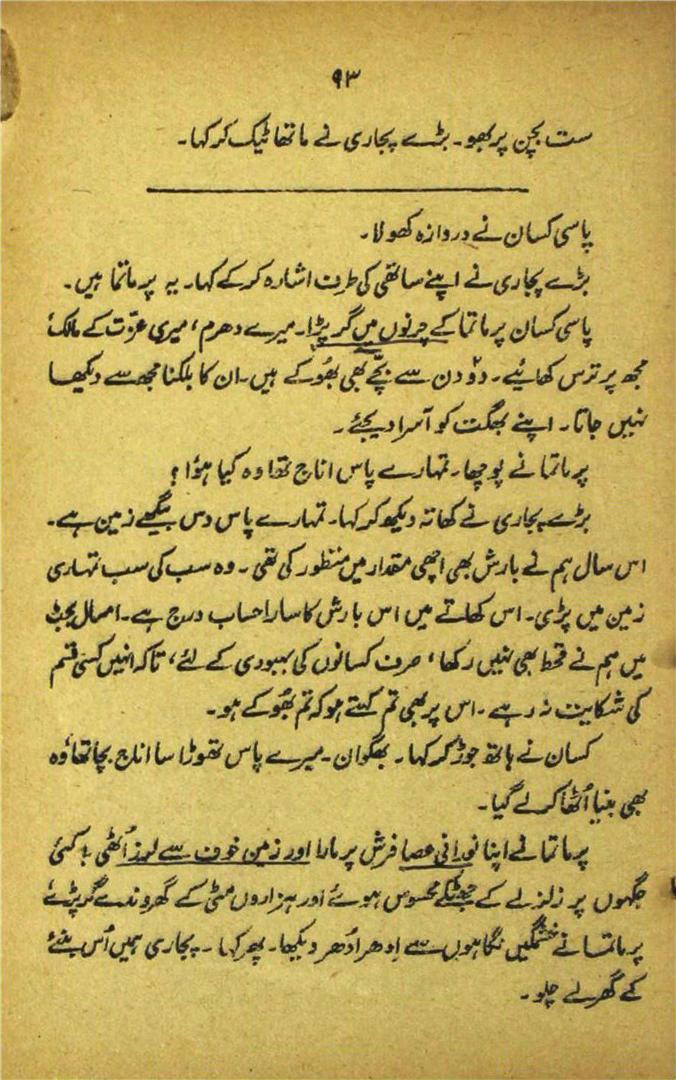 ۹۳
ست بچن پربھو۔ بڑے پجاری نے ماتھا ٹیک کر کہا۔
پاسی کسان نے دروازہ کھولا۔
بڑے پجاری نے اپنے ساتھی کی طرف اشارہ کرکے کہا۔ یہ پرماتما ہیں۔
پاسی کسان پرماتما کے چرنوں میں گر پڑا۔ میرے دھرم، میری عزّت کے مالک
مجھ پر ترس کھائیے۔ دو دن سے بچّے بھی بھُوکے ہیں۔ ان کا بلکنا مجھ سے دیکھا
نہیں جاتا۔ اپنے بھگت کو آسرا دیجئے۔
پرماتما نے پوچھا۔ تمہارے پاس اناج تھا وہ کیا ہؤا؟
بڑے پجاری نے کھاتہ دیکھ کر کہا۔ تمہارے پاس دس بیگھے زمین ہے۔
اس سال ہم نے بارش بھی اچھی مقدار میں منظور کی تھی۔ وہ سب کی سب تمہاری
زمین میں پڑی۔ اس کھاتے میں اس بارش کا سارا حساب درج ہے۔ امسال بجٹ
میں ہم نے قحط بھی نہیں رکھا، صرف کسانوں کی بہبودی کے لئے، تاکہ انہیں کسی قسم
کی شکایت نہ رہے۔ اس پر بھی تم کہتے ہو کہ تم بھُوکے ہو۔
کسان نے ہاتھ جوڑ کر کہا۔ بھگوان۔ میرے پاس تھوڑا سا اناج بچا تھا وُہ
بھی بنیا اُٹھا کر لے گیا۔
پرماتما نے اپنا نورانی عصا فرش پر مارا اور زمین خوف سے لرز اُٹھی؛ کئی
جگہوں پر زلزلے کے جھٹکے محسوس ہوئے اور ہزاروں مٹی کے گھروندے گر پڑے
پرماتما نے خشمگیں نگاہوں سے اِدھر اُدھر دیکھا۔ پھر کہا۔ پجاری ہمیں اُس بنئے
کے گھر لے چلو۔